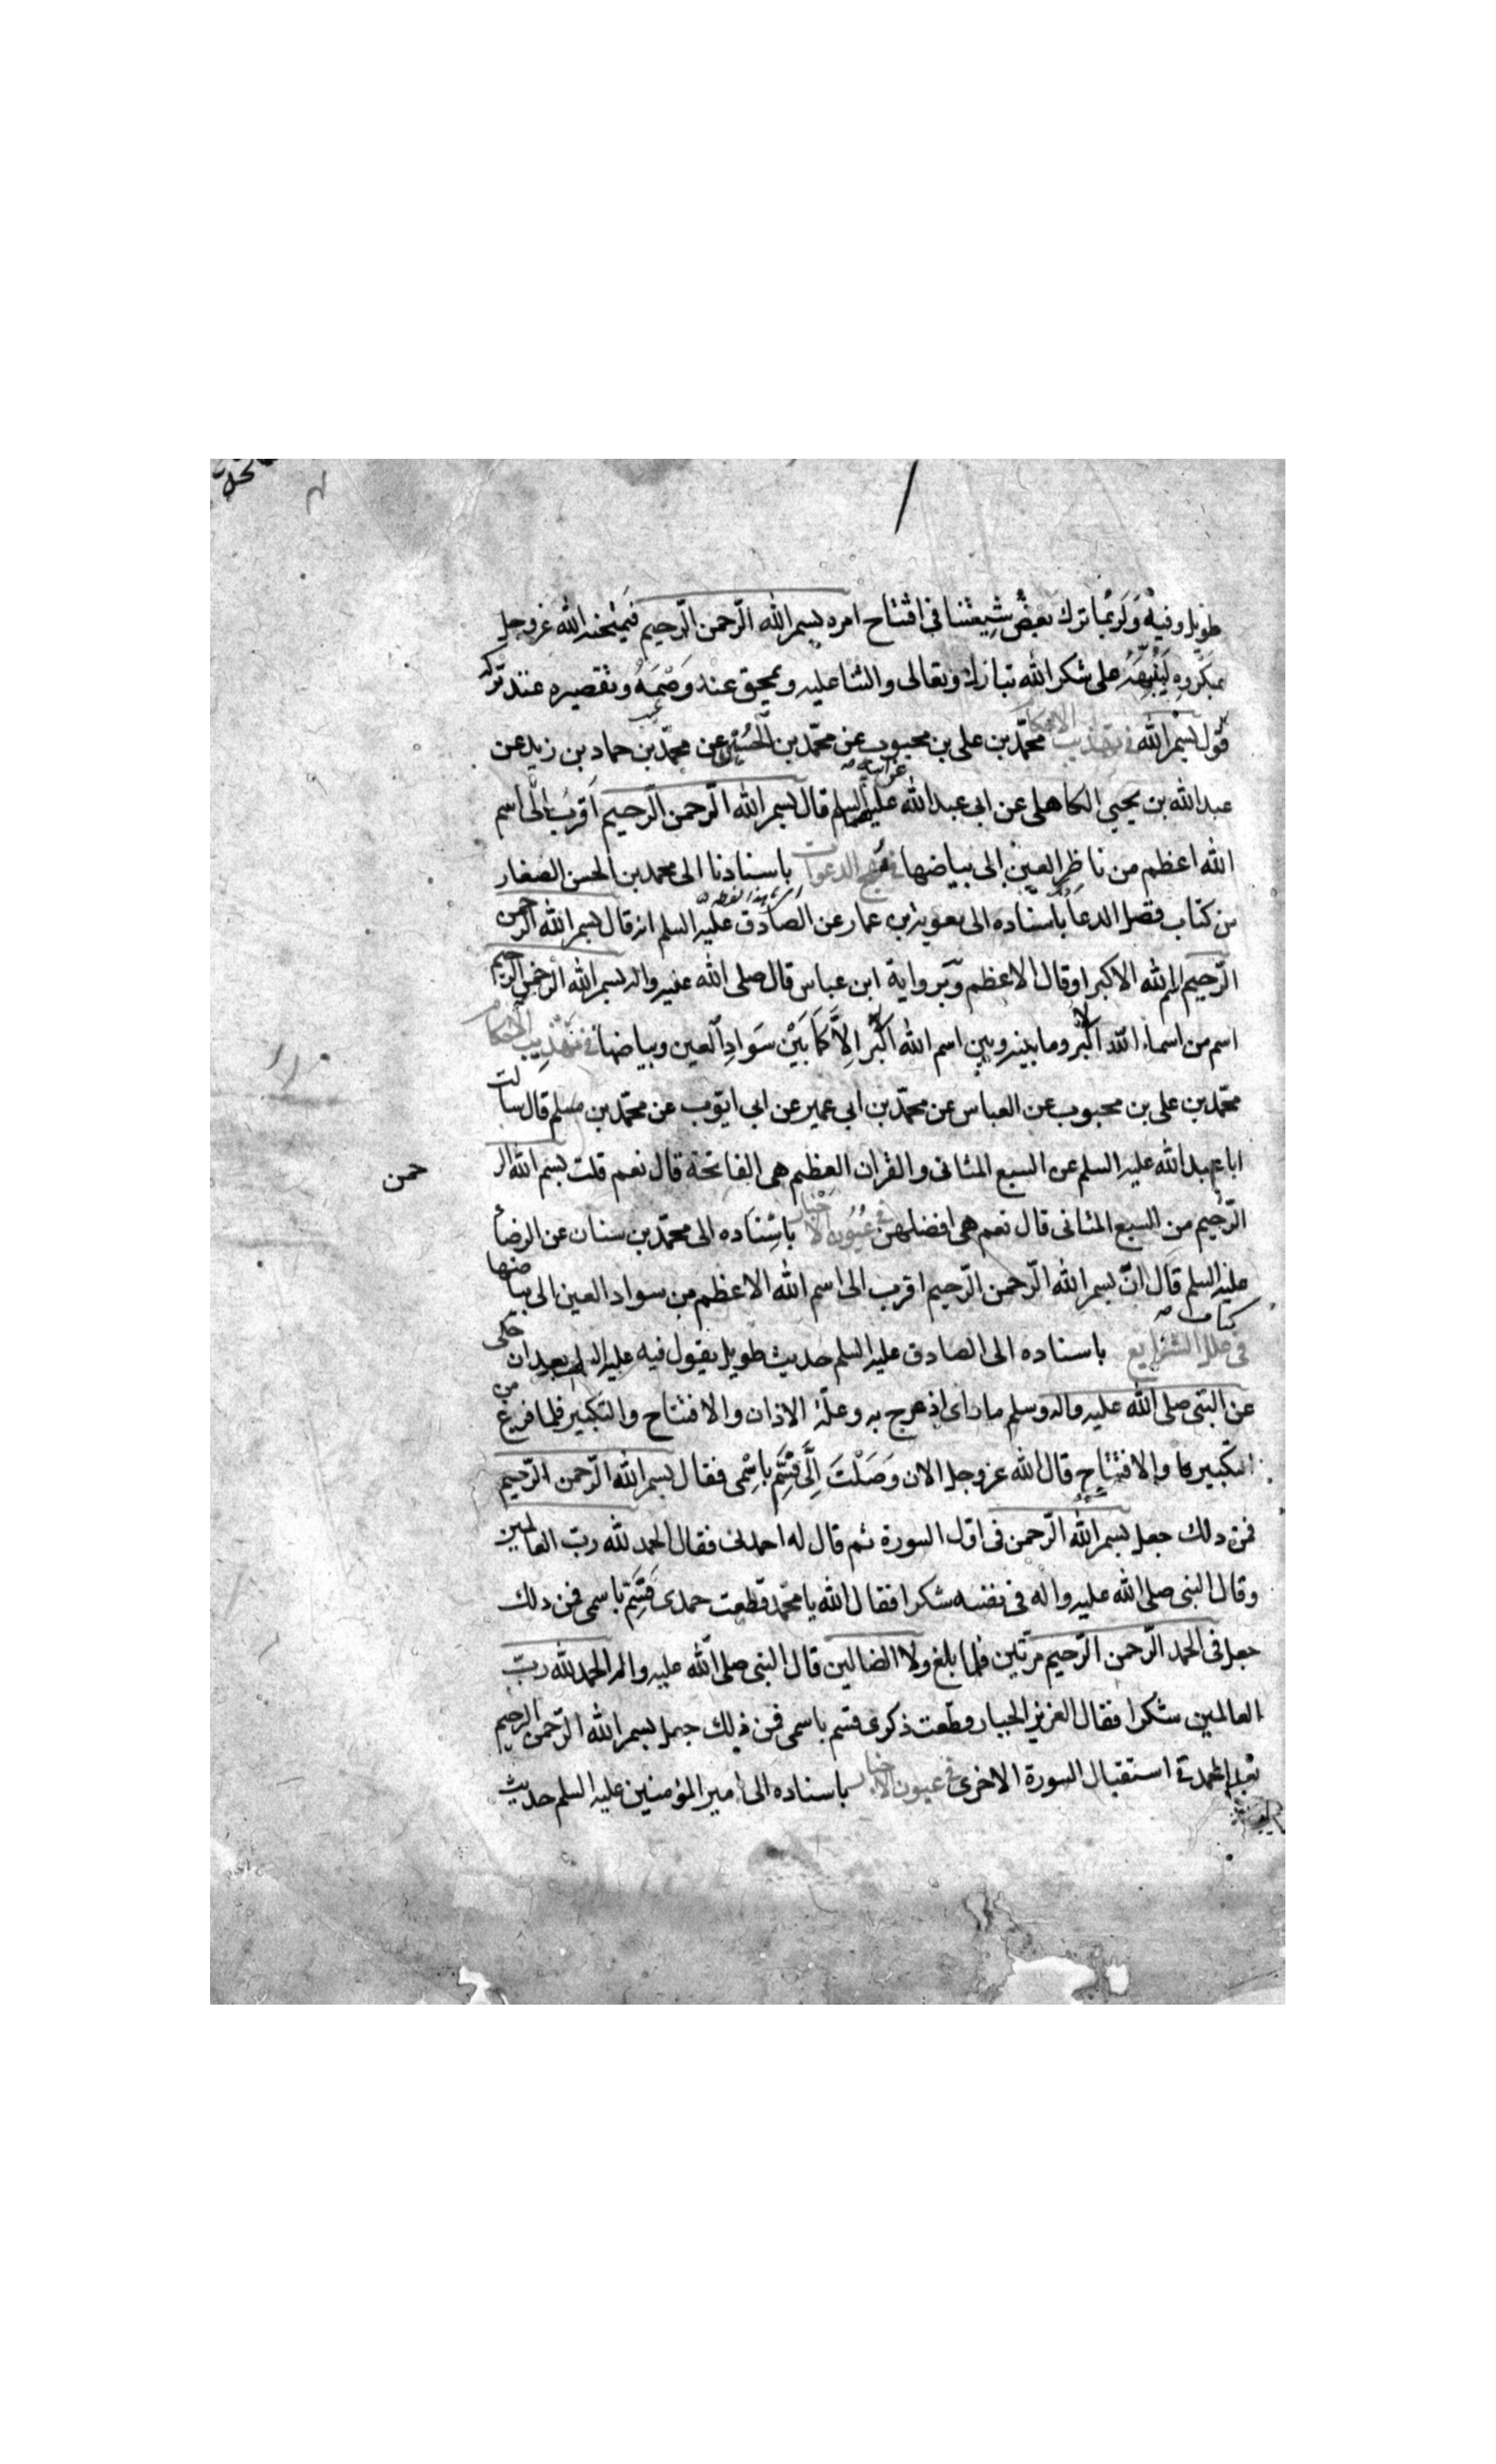 طويل وفيه وَلَرُبَّما ترك بعضُ شِيعَتنا في افتتاح امره بسم الله الرّحمن الرّحيم فيمتحنه الله عزوجل
بمكروه ليُنَبِّهَهُ على شكر الله تبارك وتعالى والثنا عليه ويمحق عنه وَصْمَةُ وتقصيره عند تركه
قول بسم الله في تهذيب الاحكام محمّد بن على بن محبوب عن محمّد بن عن محمّد بن حماد بن زيد عن
عبد الله بن يحيى الكاهلى عن ابى عبد الله عن ابيه عليهما السلم قال بسم الله الرّحمن الرّحيم اقربُ الى اسم
الله اعظم من ناظرِ العين الى بياضها في مهج الدعوات باسنادنا الى محمد بن الحسن الصفار
من كتاب فضل الدعا باسناده الى معوية بن عمار عن الصادق عليه السلم انه قال بسم الله الرحمن
الرّحيم اسم الله الاكبر او قال الاعظم وبرواية ابن عباس قال صلى الله عليه واله بسم الله الرحمن الرحيم
اسم من اسماء الله الاكبر وما بينه وبين اسم الله الاكبر الاَّ كَمَا بَيْن سَوادِ العين وبياضها في تهذيب الاحكام
محمّد بن على بن محبوب عن العباس عن محمّد بن ابى عمير عن ابى ايّوب عن محمّد بن مسلم قال سألت
ابا عبد الله عليه السلم عن السبع المثانى والقران العظيم هى الفاتحة قال نعم قلت بسم الله الر
حمن
الرّحيم من السبع المثانى قال نعم هى افضلهن في عُيُون الاخبار باسْنَاده الى محمّد بن سنان عن الرضا
عليه السلم قَال انّ بسم الله الرّحمن الرّحيم اقرب الى اسم الله الاعظم من سواد العين الى بياضها
في كتاب علل الشرايع باسناده الى الصادق عليه السلم حديث طويل يقول فيه عليه السلم بعد ان حكى
عن النبّى صلى الله عليه واله وسلم ما راى اذ عرج به وعلّة الاذان والافتتاح والتكبير فلما فرغ من
التكبير والافتتاح قال الله عزوجل الان وَصَلْتَ اِلَىَّ فَسَمِّ باسْمى فقال بسم الله الرّحمن الرّحيم
فمن ذلك جعل بسم الله الرّحمن في اوّل السورة ثم قال له احمدنى فقال الحمد لله ربّ العالمين
وقال النبى صلى الله عليه واله في نفسه شكرا فقال الله يا محمّد قطعت حمدى فَسَمِّ باسمى فمن ذلك
جعل في الحمد الرّحمن الرّحيم مرّتين فلما بلغ ولا الضالين قال النبى صلى الله عليه واله الحمد لله ربّ
العالمين شكرا فقال العزيز الجبار قطعت ذكرى فسم باسمى فمن ذلك جعل بسم الله الرّحمن الرحيم
بعد الحمد في استقبال السورة الاخرى في عيون الاخبار باسناده الى امير المؤمنين عليه السلم حديث